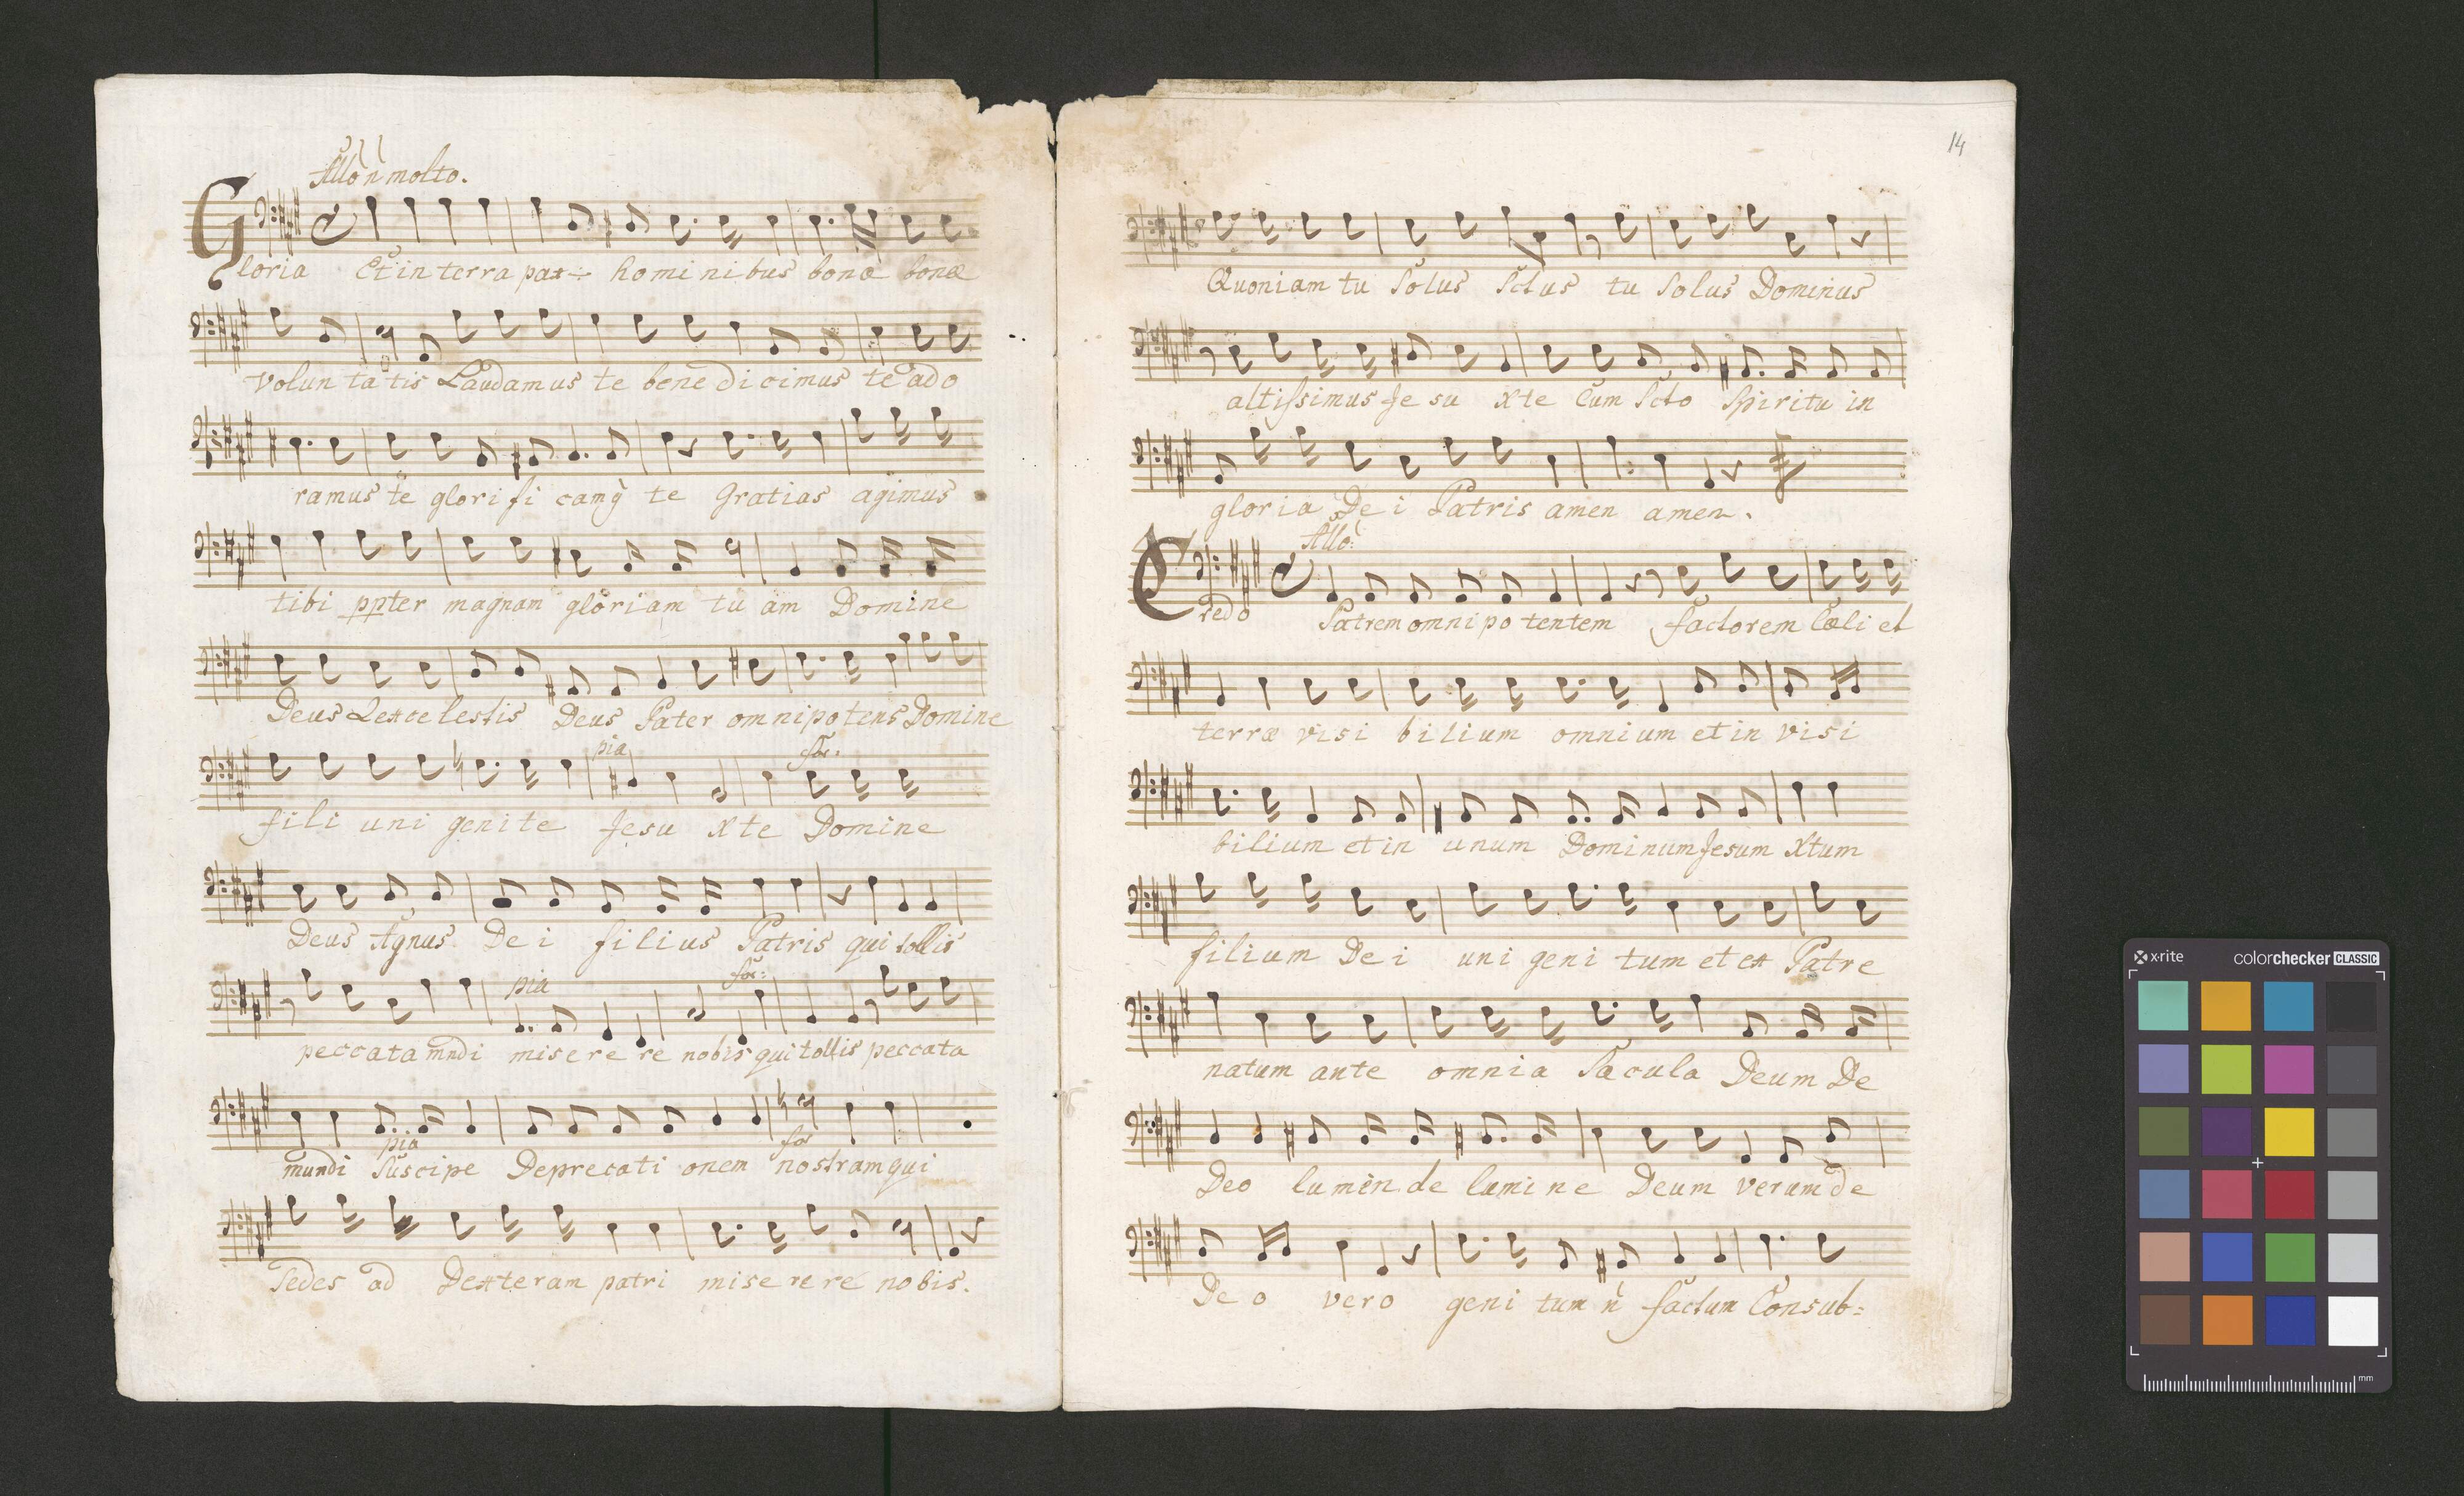 Allo ñ molto.
Gloria Et in terra pax hominibus bonæ bonæ
voluntatis Laudamus te benedicimus te ado
ramus te glorificamq te Gratias agimus
tibi ppter magnam gloriam tuam Domine
Deus Rex celestis Deus Pater omnipotens Domine
pia for.
fili unigenite Jesu Xte Domine
Deus Agnus Dei filius Patris qui tollis
pia for:
peccata mndi miserere nobis qui tollis peccata
pia for
mundi Suscipe Deprecationem nostram qui
Sedes ad Dexteram patri miserere nobis.
14
Quoniam tu Solus Sctus tu Solus Dominus
altissimus Jesu Xte Cum Scto Spiritu in
gloria Dei Patris amen amen.
Allo:
Credo Patrem omnipotentem factorem Cæli et
terræ visibilium omnium et in visi
bilium et in unum Dominum Jesum Xtum
filium Dei unigenitum et ex Patre
natum ante omnia Sæcula Deum De
Deo lumen de lumine Deum verum de
Deo vero genitum ñ factum Consub=
x·rite colorchecker CLASSIC
mm